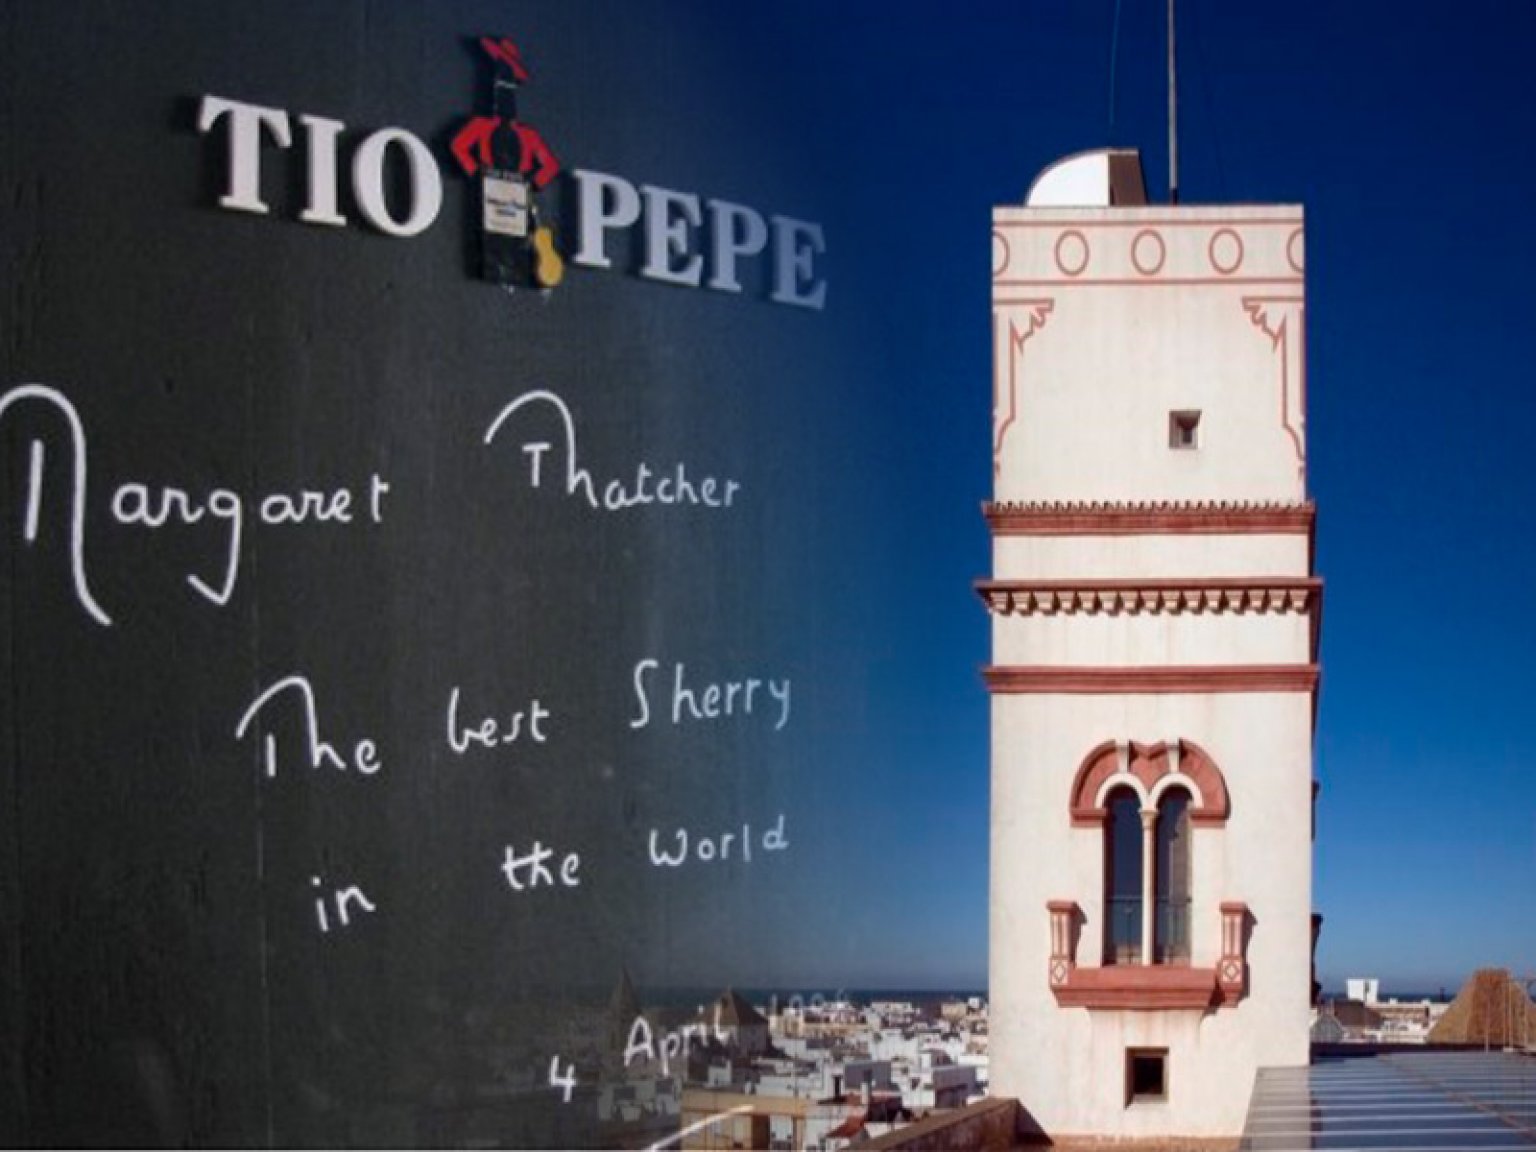 TIO PEPE
Margaret Thatcher
The best Sherry
in the World
4 April